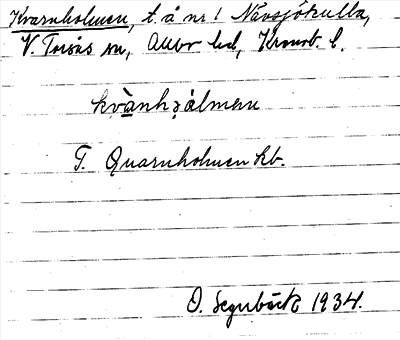 Kvarnholmen, t. å nr 1 Nävsjökulla,
V. Torsås sn, Allbo hd, Kronob. l.
kvànhɔ̣álmen
T. Quarnholmen kb.
O. Segnbäck 1934.